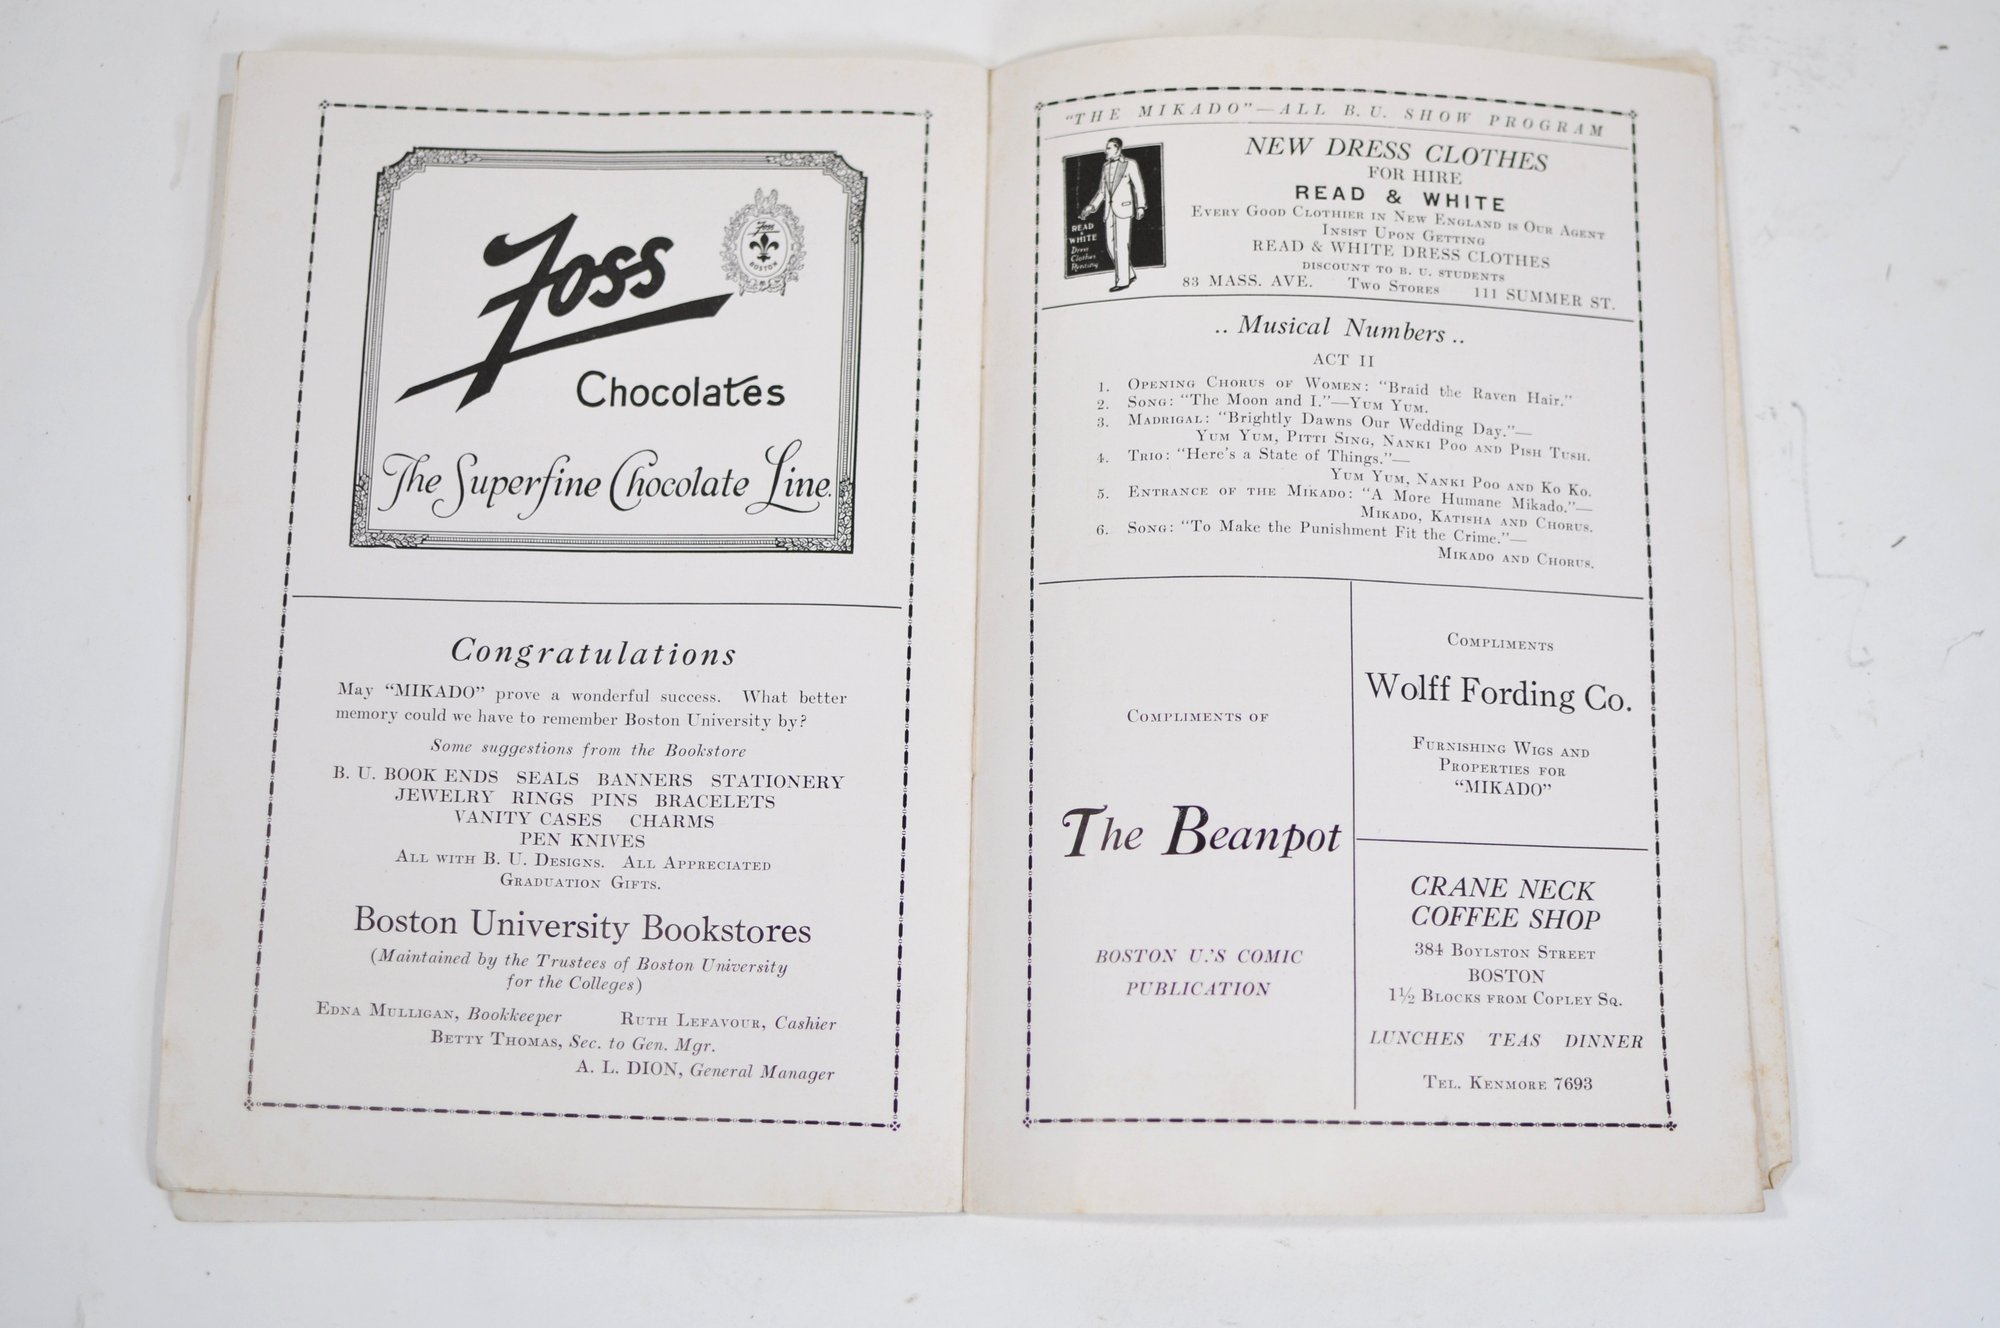 Foss
Foss
BOSTON
Chocolates
The Superfine Chocolate Line.
Congratulations
May "MIKADO" prove a wonderful success. What better
memory could we have to remember Boston University by?
Some suggestions from the Bookstore
B. U. BOOK ENDS SEALS BANNERS STATIONERY
JEWELRY RINGS PINS BRACELETS
VANITY CASES CHARMS
PEN KNIVES
ALL WITH B. U. DESIGNS. ALL APPRECIATED
GRADUATION GIFTS.
Boston University Bookstores
(Maintained by the Trustees of Boston University
for the Colleges)
EDNA MULLIGAN, Bookkeeper RUTH LEFAVOUR, Cashier
BETTY THOMAS, Sec. to Gen. Mgr.
A. L. DION, General Manager
"THE MIKADO"—ALL B. U. SHOW PROGRAM
READ
&
WHITE
Dress
Clothes
Renting
NEW DRESS CLOTHES
FOR HIRE
READ & WHITE
EVERY GOOD CLOTHIER IN NEW ENGLAND IS OUR AGENT
INSIST UPON GETTING
READ & WHITE DRESS CLOTHES
DISCOUNT TO B. U. STUDENTS
83 MASS. AVE. TWO STORES 111 SUMMER ST.
.. Musical Numbers ..
ACT II
1. OPENING CHORUS OF WOMEN: "Braid the Raven Hair."
2. SONG: "The Moon and I."—YUM YUM.
3. MADRIGAL: "Brightly Dawns Our Wedding Day."—
YUM YUM, PITTI SING, NANKI POO AND PISH TUSH.
4. TRIO: "Here's a State of Things."—
YUM YUM, NANKI POO AND KO KO.
5. ENTRANCE OF THE MIKADO: "A More Humane Mikado."—
MIKADO, KATISHA AND CHORUS.
6. SONG: "To Make the Punishment Fit the Crime."—
MIKADO AND CHORUS.
COMPLIMENTS OF
The Beanpot
BOSTON U.'S COMIC
PUBLICATION
COMPLIMENTS
Wolff Fording Co.
FURNISHING WIGS AND
PROPERTIES FOR
"MIKADO"
CRANE NECK
COFFEE SHOP
384 BOYLSTON STREET
BOSTON
1½ BLOCKS FROM COPLEY SQ.
LUNCHES TEAS DINNER
TEL. KENMORE 7693